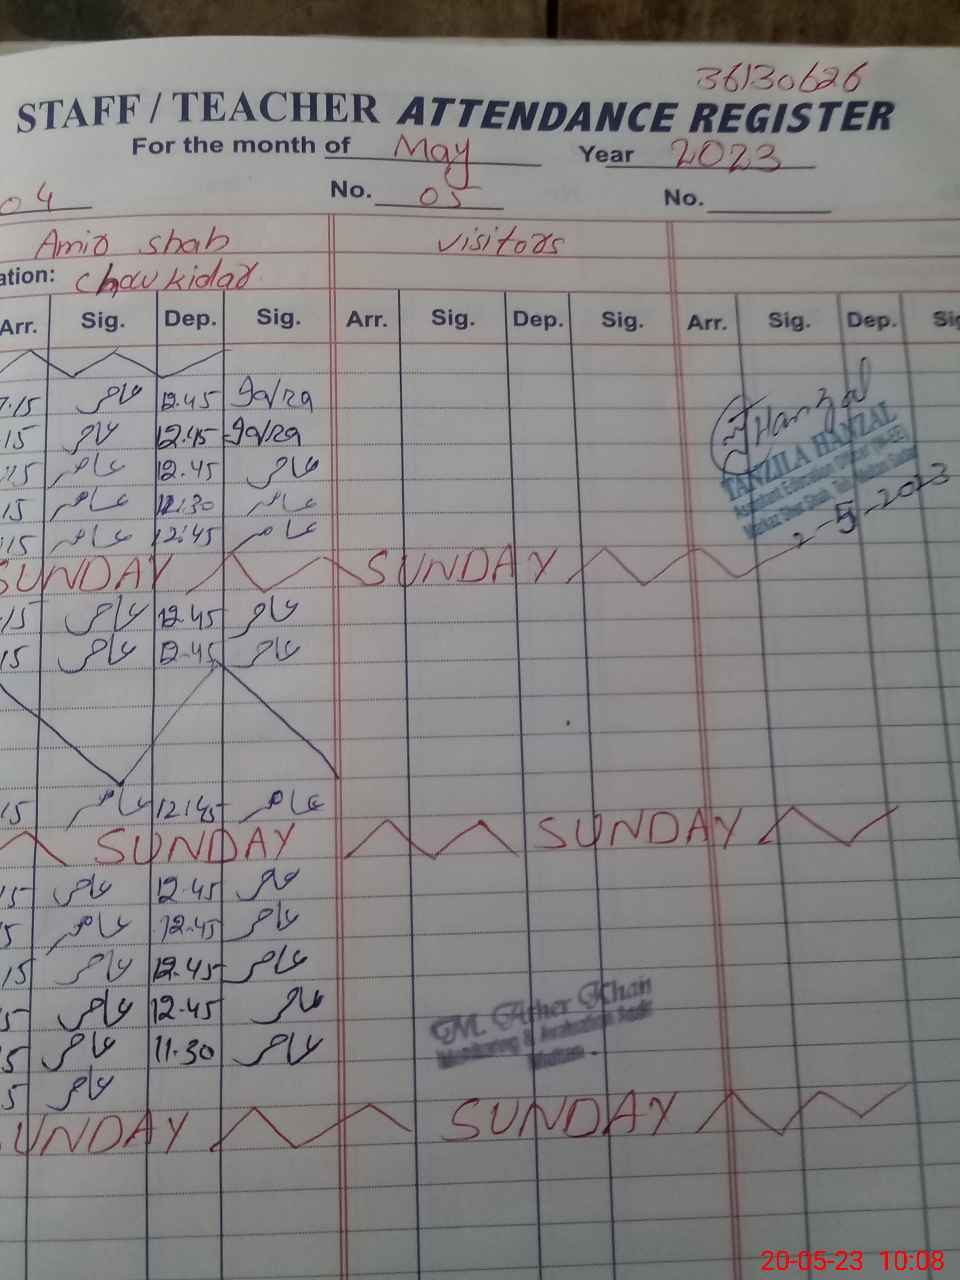 36130626
STAFF / TEACHER ATTENDANCE REGISTER
For the month of May Year 2023
04 No. 05 No.
Amir shah visitors
ation: Chowkidar
Arr. Sig. Dep. Sig. Arr. Sig. Dep. Sig. Arr. Sig. Dep. Sig
7.15 عامر 12.45
15 عامر 12.45
15 عامر 12.45 عامر
15 عامر 11:30 عامر
15 عامر 12:45 عامر
SUNDAY SUNDAY
15 عامر 12.45 عامر
15 عامر 12.45 عامر
15 عامر 12:45 عامر
SUNDAY SUNDAY
15 عامر 12.45 عامر
5 عامر 12.45 عامر
15 عامر 12.45 عامر
5 عامر 12.45 عامر
5 عامر 11.30 عامر
5 عامر
SUNDAY SUNDAY
Hanzal
TANZILA HANZAL
Assistant Education Officer
2-5-2023
M. Ather Khan
Monitoring & Evaluation
Multan
20-05-23 10:08